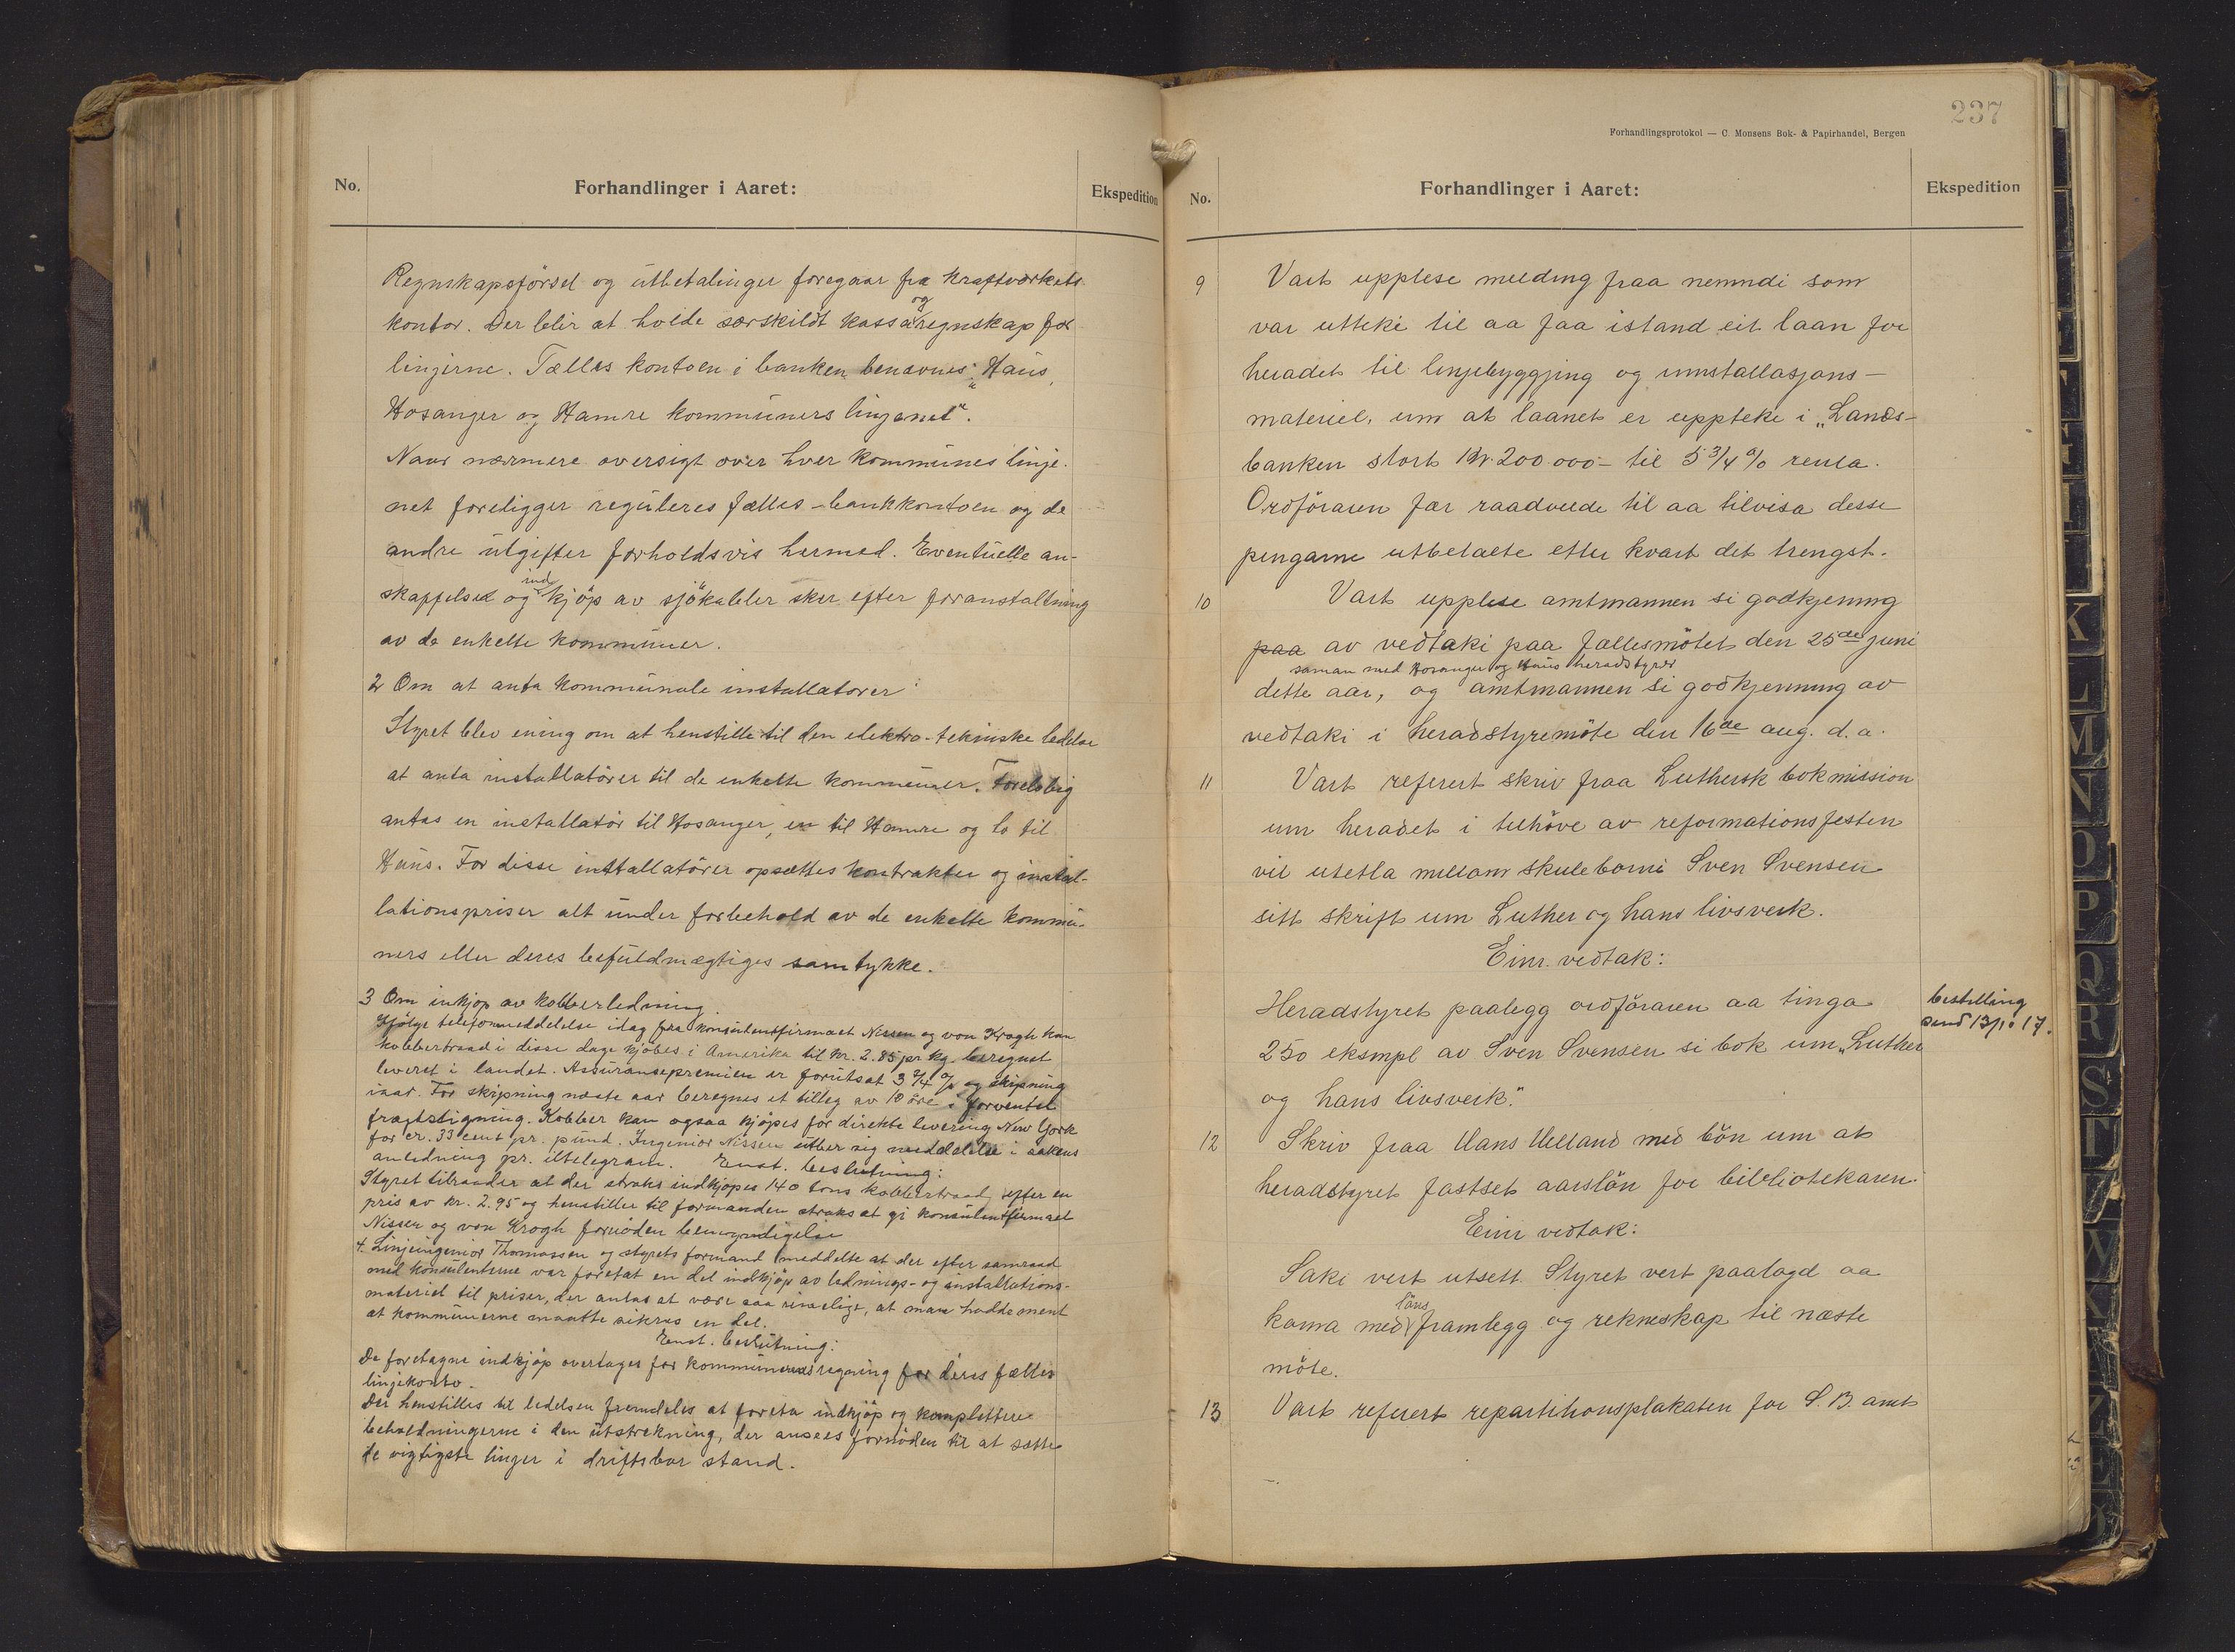 No.
Forhandlinger i Aaret:
Ekspedition
Regnskapsförsel og utbetalinger foregaar fra Kraftværkets
kontor. Der blir at holde særskildt kassa og regnskap for
linjerne. Fælles kontoen i banken benævnes: "Haus,
Hosanger og Hamre kommuners linjenet".
Naar nærmere oversigt over hver kommunes linje-
net foreligger reguleres fælles-bankkontoen og de
andre utgifter forholdsvis hermed. Eventuelle an-
skaffelser og indkjöp av sjökabler sker efter foranstaltning
av de enkelte kommuner.
2 Om at anta kommunale installatører:
Styret blev enig om at henstille til den elektro-tekniske ledelse
at anta installatører til de enkelte kommuner. Foreløbig
antas en installatör til Hosanger, en til Hamre og to til
Haus. For disse installatörer opsættes kontrakter og instal-
lationspriser alt under forbehold av de enkelte kommu-
ners eller deres befuldmægtiges samtykke.
3 Om inkjøp av kobberledning
Ifölge telefonmeddelelse idag fra konsulentfirmaet Nissen og von Krogh kan
kobbertraad i disse dage kjöbes i Amerika til kr. 2.85 pr kg. beregnet
leveret i landet. Assurancepremien er forutsat 3 3/4 % og skipning
iaar. For skipning næste aar beregnes et tillæg av 10 öre i forventet
fragtstigning. Kobber kan ogsaa kjöpes for direkte levering New York
for cr. 33 cent pr. pund. Ingeniör Nissen utber sig meddelelse i sakens
anledning pr. iltelegram. Enst. beslutning:
Styret tilraader at der straks indkjøpes 140 tons kobbertraad, efter en
pris av kr. 2.95 og henstiller til formanden straks at gi konsulentfirmaet
Nissen og von Krogh fornöden bemyndigelse
4. Linjeingeniör Thomassen og styrets formand meddelte at der efter samraad
med konsulenterne var foretat en del indkjöp av lednings- og installations-
materiel til priser, der antas at være saa rimelige, at man hadde ment
at kommunerne maatte sikres en del.
Enst. beslutning:
De foretagne indkjöp overtages for kommunenes regning for deres fælles
linjekonto.
Der henstilles til ledelsen fremdeles at foreta indkjöp og komplettere
beholdningerne i den utstrekning, der ansees fornöden til at sætte
de vigtigste linjer i driftsbar stand.
237
Forhandlingsprotokol — C. Monsens Bok- & Papirhandel, Bergen
No.
Forhandlinger i Aaret:
Ekspedition
9 Vart upplese melding fraa nemndi som
var utteki til aa faa istand eit laan for
heradet til linjebyggjing og innstallasjons-
materiel, um at laanet er uppteke i „Lands-
banken stort kr. 200.000- til 5 3/4 % renta.
Ordföraren fær raadvelde til aa tilvisa desse
pengarne utbetalte etter kvart det trengst.
10 Vart upplese amtmannen si godkjening
paa av vedtaki paa fællesmötet den 25de juni
saman med Hosanger og Haus heradstyrer
dette aar, og amtmannen si godkjenning av
vedtaki i heradstyremöte den 16de aug. d. a.
11 Vart referert skriv fraa Luthersk bokmission
um heradet i tilhöve av reformationsfesten
vil utetla millom skuleborni Sven Svensen
sitt skrift um Luther og hans livsverk.
Einr. vedtak:
Heradstyret paalegg ordföraren aa tinga
250 eksmpl av Sven Svensen si bok um „Luther
og hans livsverk."
bestilling
send 13/10 17.
12 Skriv fraa Hans Helland med bön um at
heradstyret fastset aarslön for bibliotekaren.
Einr vedtak:
Saki vert utsett. Styret vert paalagd aa
koma med löns framlegg og rekneskap til næste
möte.
13 Vart referert repartitionsplakaten for S. B. amt